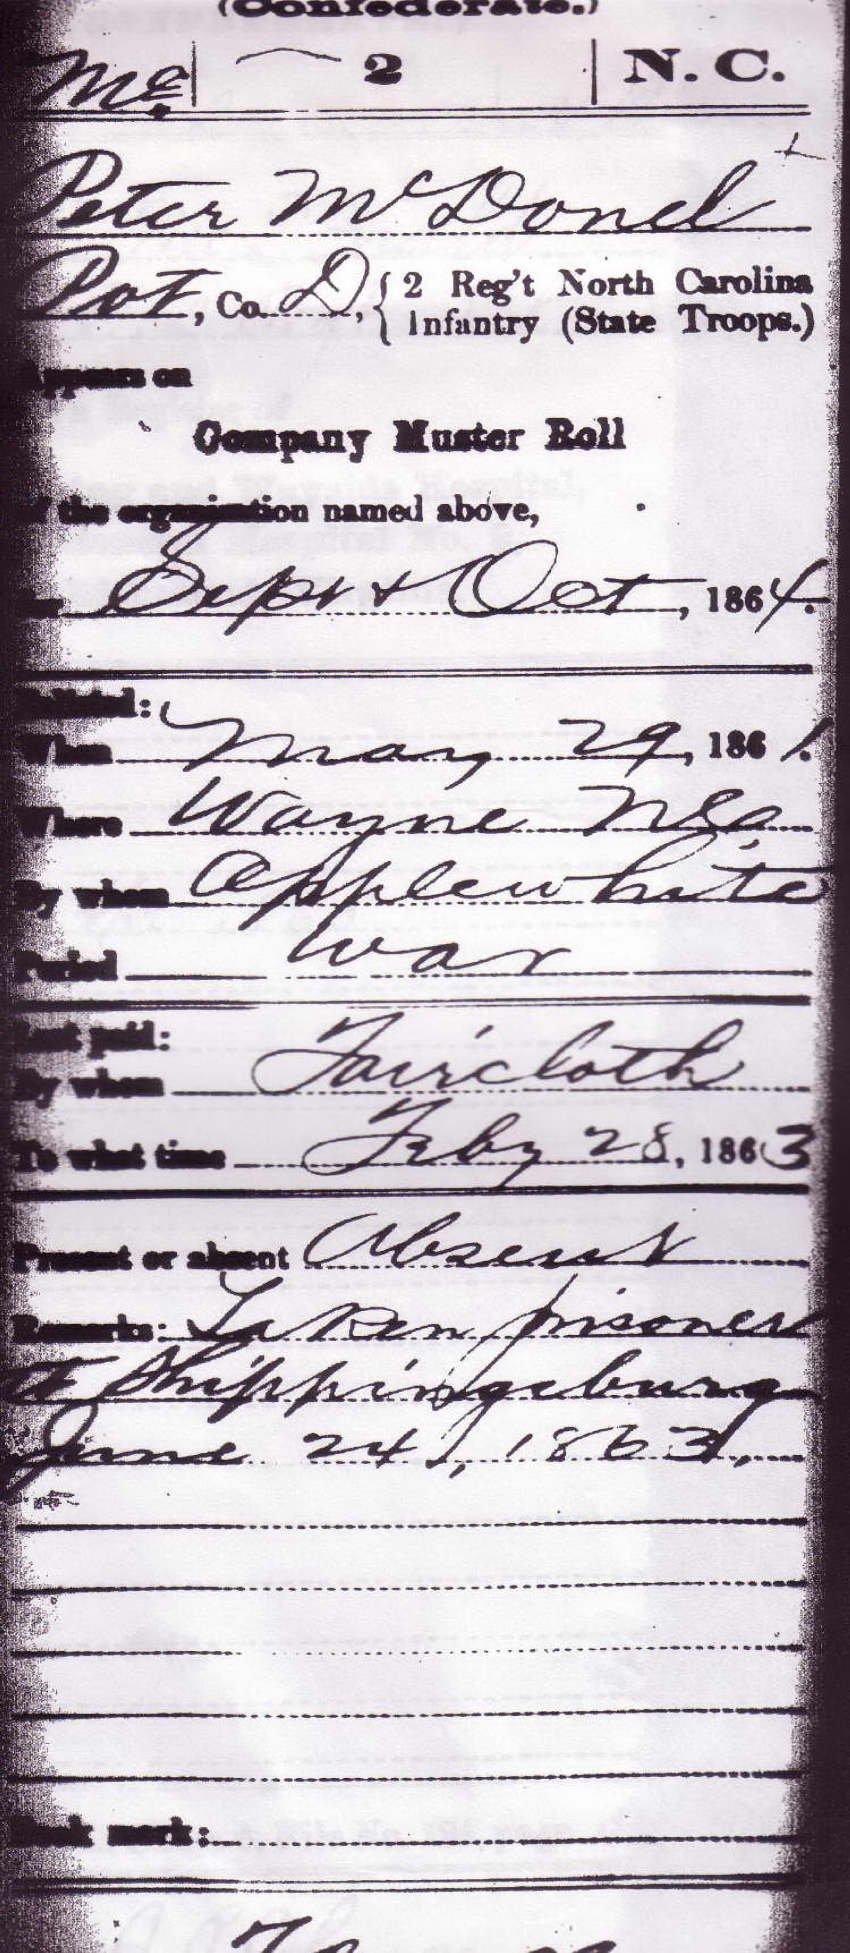 (Confederate.)
Mc | 2 | N. C.
Peter McDonel
Pvt, Co. D, { 2 Reg't North Carolina
Infantry (State Troops.)
Appears on
Company Muster Roll
of the organization named above,
for Sept + Oct, 1864.
Enlisted:
When May 29, 1861.
Where Wayne NCo
By whom Applewhite
Period War
Last paid:
By whom Faircloth
To what time Feby 28, 1863
Present or absent Absent
Remarks: Taken prisoner
at Shippingsburg
June 24, 1863,
Book mark: